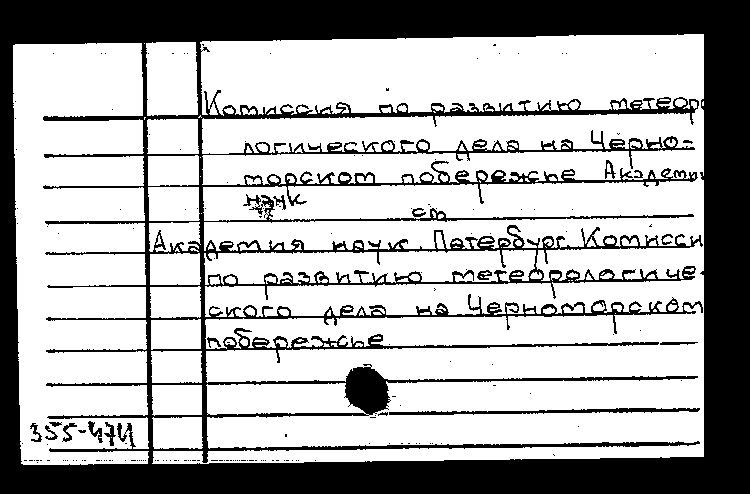 Комиссия по развитию метеоро
логического дела на Черно=
морском побережье Академи
наук
см
Академия наук. Петербург. Комисси
по развитию метеорологиче-
ского дела на Черноморском
побережье
355-474